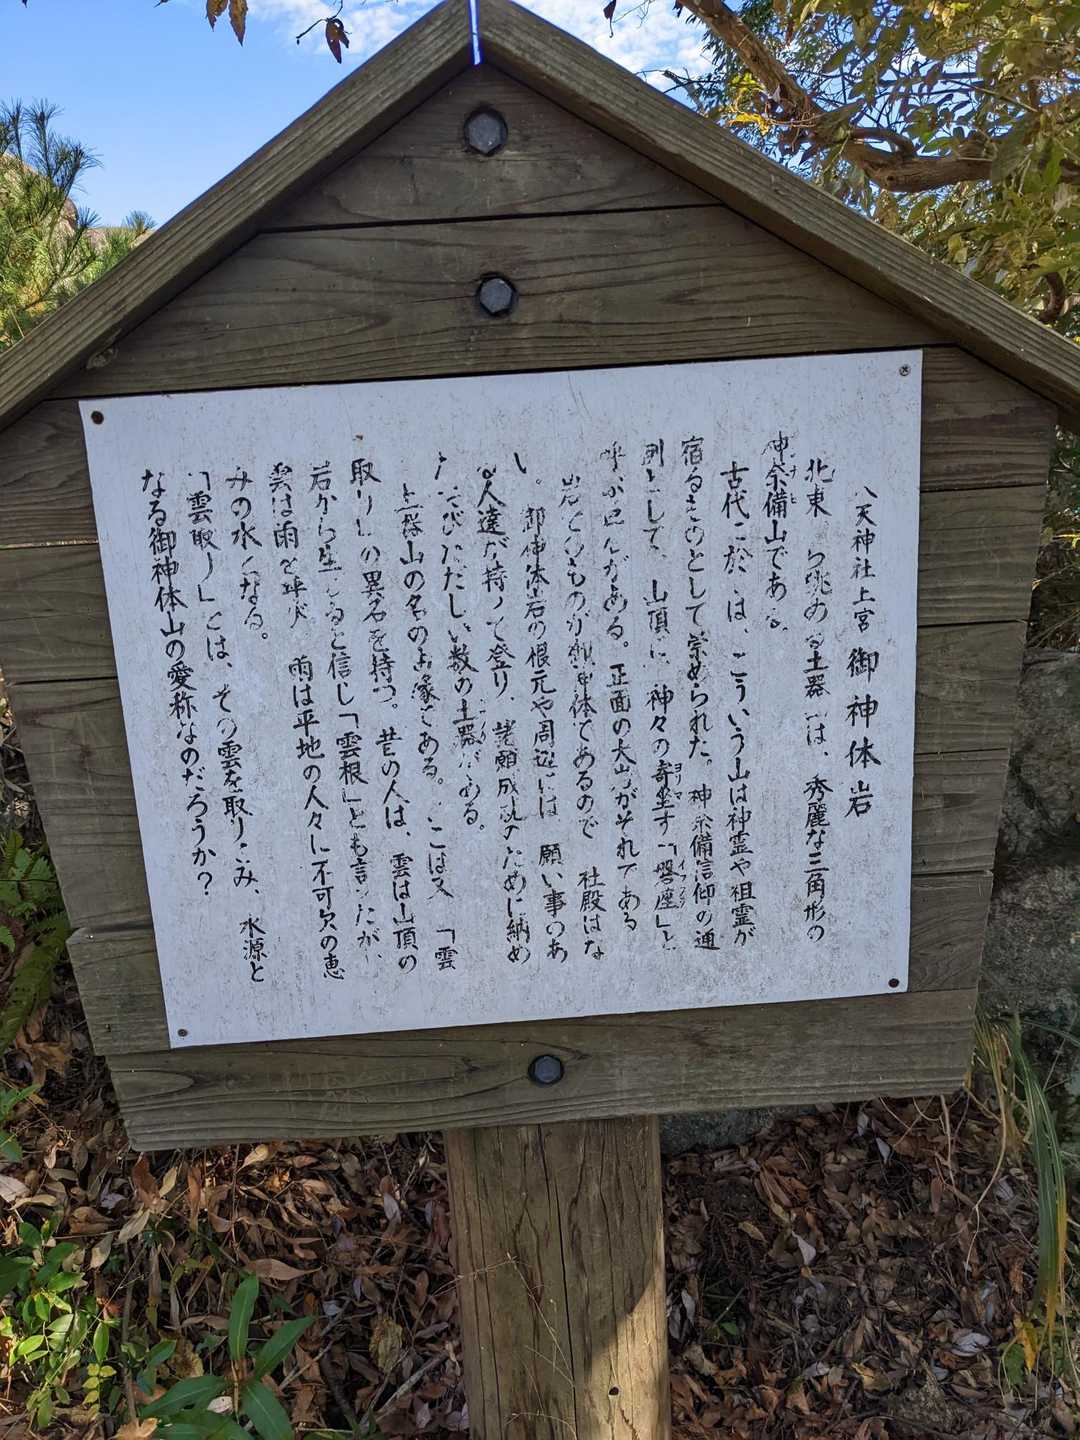 八天神社上宮 御神体岩
北東 ら眺める土器 は、秀麗な三角形の
神奈備山である。
古代に於 は、こういう山は神霊や祖霊が
宿るものとして崇められた。神奈備信仰の通
例として、山頂に、神々の寄坐す「磐座」と
ヨリマ イワクラ
呼ぶ巨 がある。正面の大 がそれである
岩そのものが御神体であるので 社殿はな
い。御神体岩の根元や周辺には 願い事のあ
る人達が持って登り、諸願成就のために納め
たおびただしい数の土器がある。
土器山の名のお縁である。ここは又 「雲
取り」の異名を持つ。昔の人は、雲は山頂の
岩から生じると信じ「雲根」とも言ったが、
雲は雨を呼び、雨は平地の人々に不可欠の恵
みの水となる。
「雲取り」とは、その雲を取りこみ、水源と
なる御神体山の愛称なのだろうか?